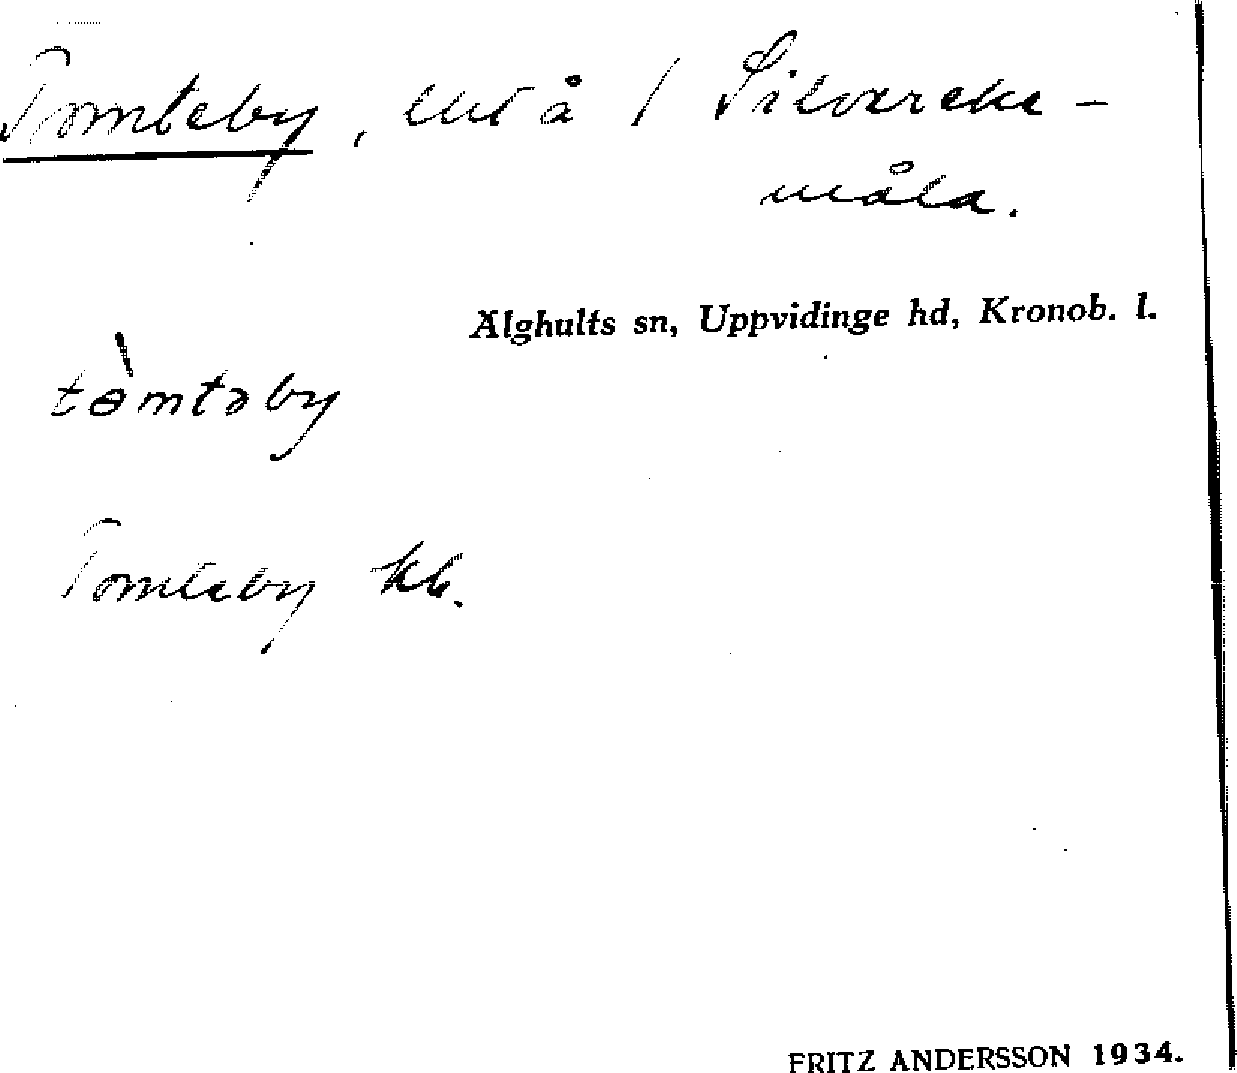 Tomteby, lht å 1 Silvereke-
måla.
Älghults sn, Uppvidinge hd, Kronob. l.
tòmtəby
Tomteby kb.
FRITZ ANDERSSON 1934.